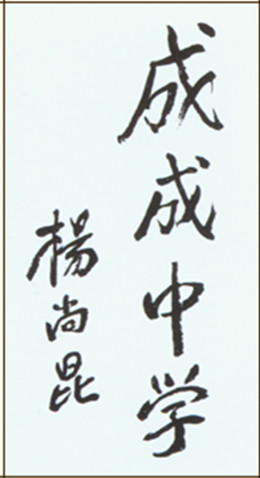 成成中学
楊尚昆